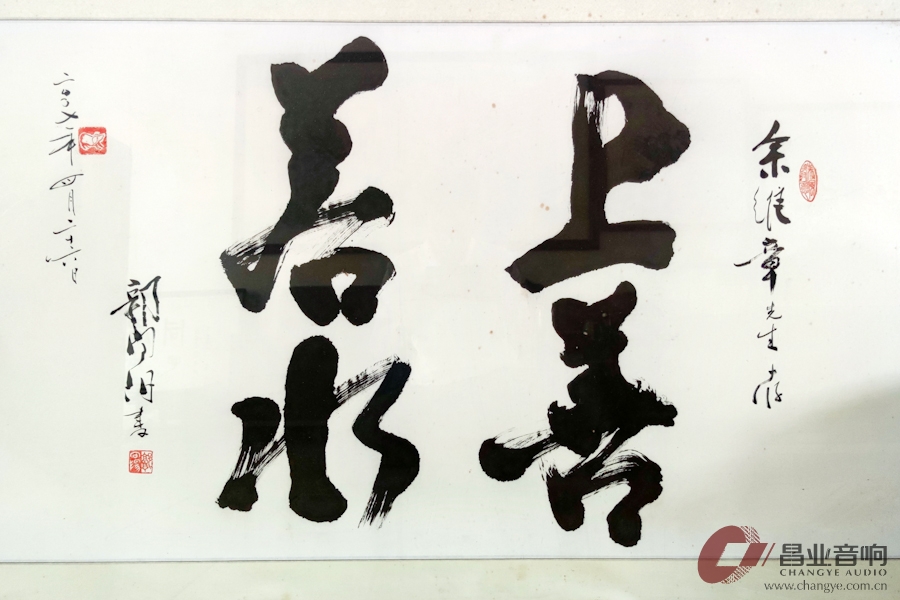 余维章先生存
上善
若水
二〇〇七年四月二十六日
昌业音响
CHANGYE AUDIO
www.changye.com.cn